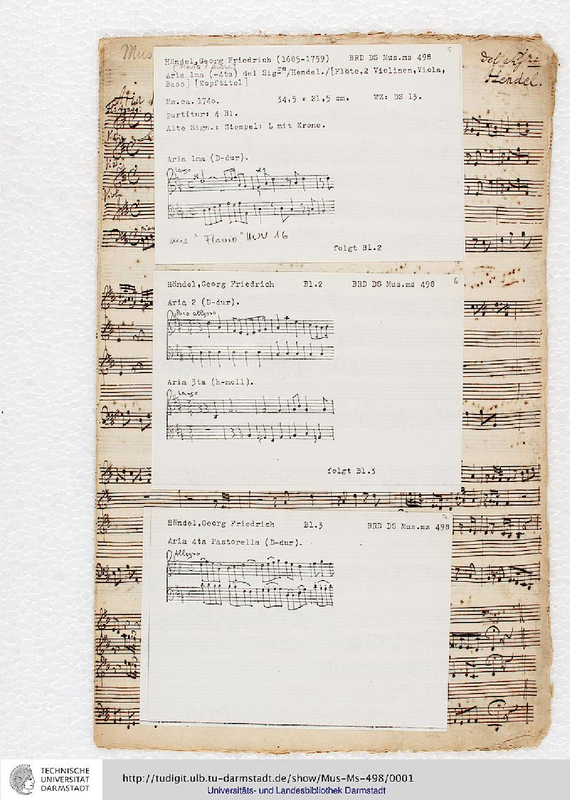 Mus
Del Sigre
Hendel.
Händel,Georg Friedrich (1685-1759) BRD DS Mus.ms 498
Aria 1ma (-4ta) del Sigre/Hendel./[Flöte,2 Violinen,Viola,
Bass] [Kopftitel]
Ms.ca. 1740. 34,5 x 21,5 cm. WZ: DS 13.
Partitur: 4 Bl.
Alte Sign.: Stempel: L mit Krone.
Aria 1ma (D-dur).
Largo
aus "Flavio" HWV 16
folgt Bl.2
Händel,Georg Friedrich Bl.2 BRD DS Mus.ms 498
Aria 2 (D-dur).
Poco allegro
Aria 3ta (h-moll).
Largo
folgt Bl.3
Händel,Georg Friedrich Bl.3 BRD DS Mus.ms 498
Aria 4ta Pastorella (D-dur).
Allegro
TECHNISCHE
UNIVERSITÄT
DARMSTADT
http://tudigit.ulb.tu-darmstadt.de/show/Mus-Ms-498/0001
Universitäts- und Landesbibliothek Darmstadt